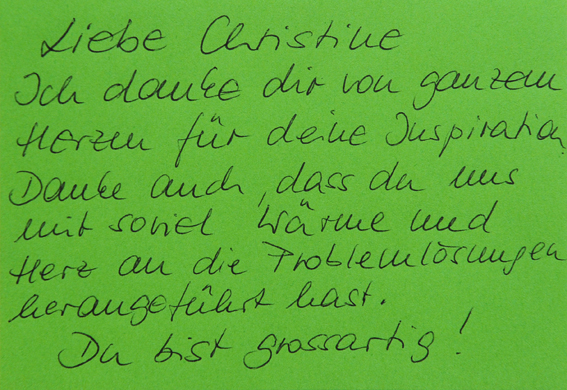 Liebe Christine
Ich danke dir von ganzem
Herzen für deine Inspiration.
Danke auch, dass du uns
mit soviel Wärme und
Herz an die Problemlösungen
herangeführt hast.
Du bist grossartig!